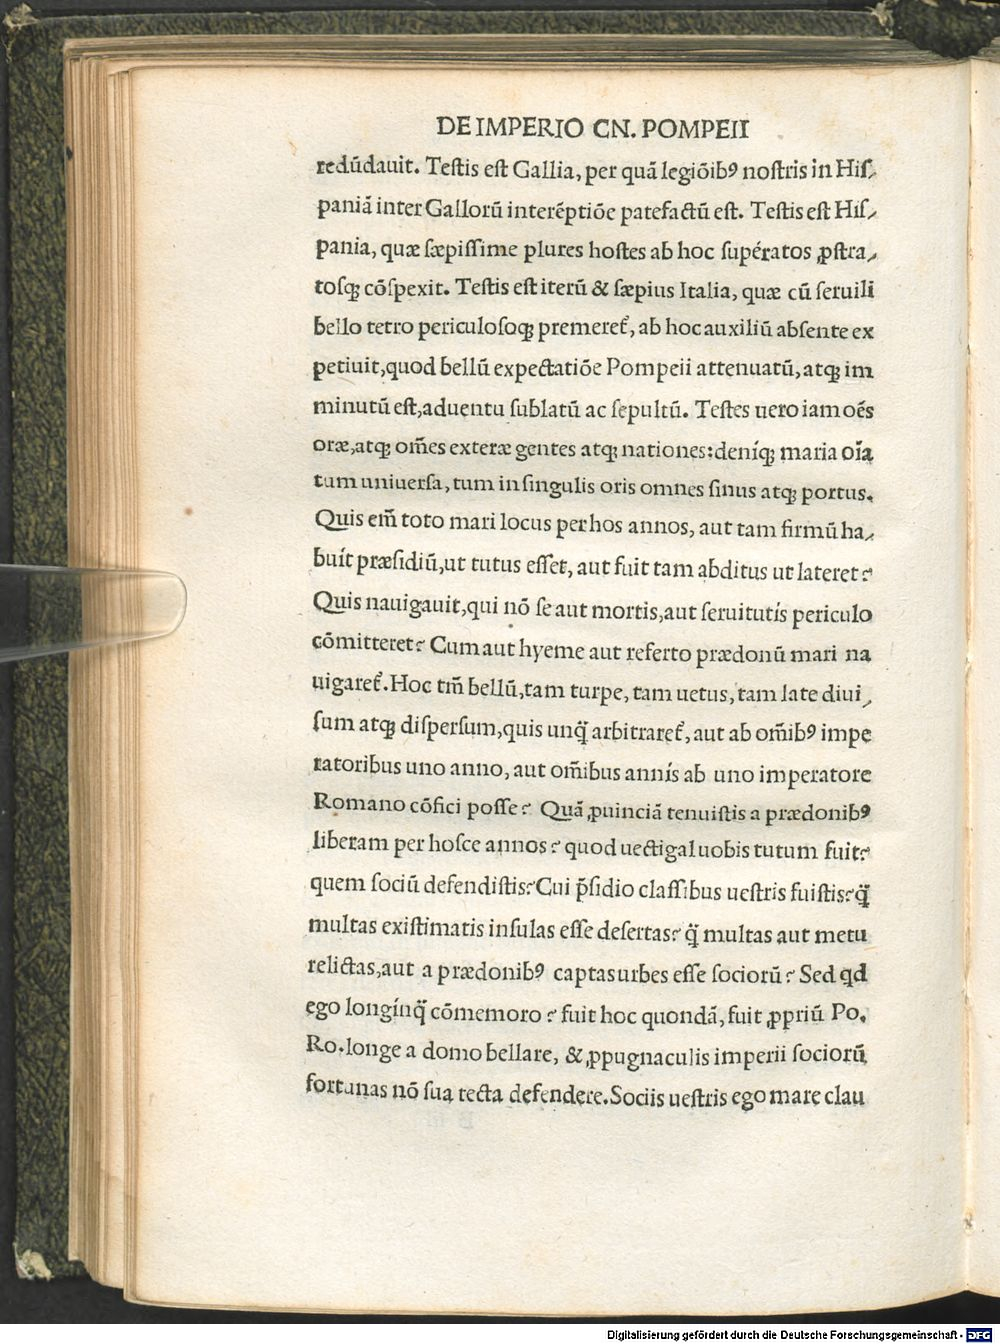 DE IMPERIO CN. POMPEII
redūdauit. Testis est Gallia, per quā legiōibꝰ nostris in His⸗
paniā inter Gallorū interēptiōe patefactū est. Testis est His⸗
pania, quæ sæpissime plures hostes ab hoc supératos ꝓstra⸗
tosq; cōspexit. Testis est iterū & sæpius Italia, quæ cū seruili
bello tetro periculosoq; premeret᷑, ab hoc auxiliū absente ex
petiuit, quod bellū expectatiōe Pompeii attenuatū, atq; im
minutū est, aduentu sublatū ac sepultū. Testes uero iam oēs
oræ, atq; om̄es exteræ gentes atq; nationes: deniq; maria oīa
tum uniuersa, tum in singulis oris omnes sinus atq; portus.
Quis em̄ toto mari locus per hos annos, aut tam firmū ha⸗
buit præsidiū, ut tutus esset, aut fuit tam abditus ut lateret?
Quis nauigauit, qui nō se aut mortis, aut seruitutis periculo
cōmitteret? Cum aut hyeme aut referto prædonū mari na
uigaret᷑. Hoc tm̄ bellū, tam turpe, tam uetus, tam late diui⸗
sum atq; dispersum, quis unq̃ arbitraret᷑, aut ab om̄ibꝰ impe
ratoribus uno anno, aut om̄ibus annis ab uno imperatore
Romano cōfici posse? Quā ꝓuinciā tenuistis a prædonibꝰ
liberam per hosce annos? quod uectigal uobis tutum fuit?
quem sociū defendistis? Cui p̄sidio classibus uestris fuistis? q̃
multas existimatis insulas esse desertas? q̃ multas aut metu
relictas, aut a prædonibꝰ captas urbes esse sociorū? Sed qd
ego longinq̃ cōmemoro? fuit hoc quondā, fuit ꝓpriū Po.
Ro. longe a domo bellare, & ꝓpugnaculis imperii sociorū
fortunas nō sua tecta defendere. Sociis uestris ego mare clau
Digitalisierung gefördert durch die Deutsche Forschungsgemeinschaft - DFG